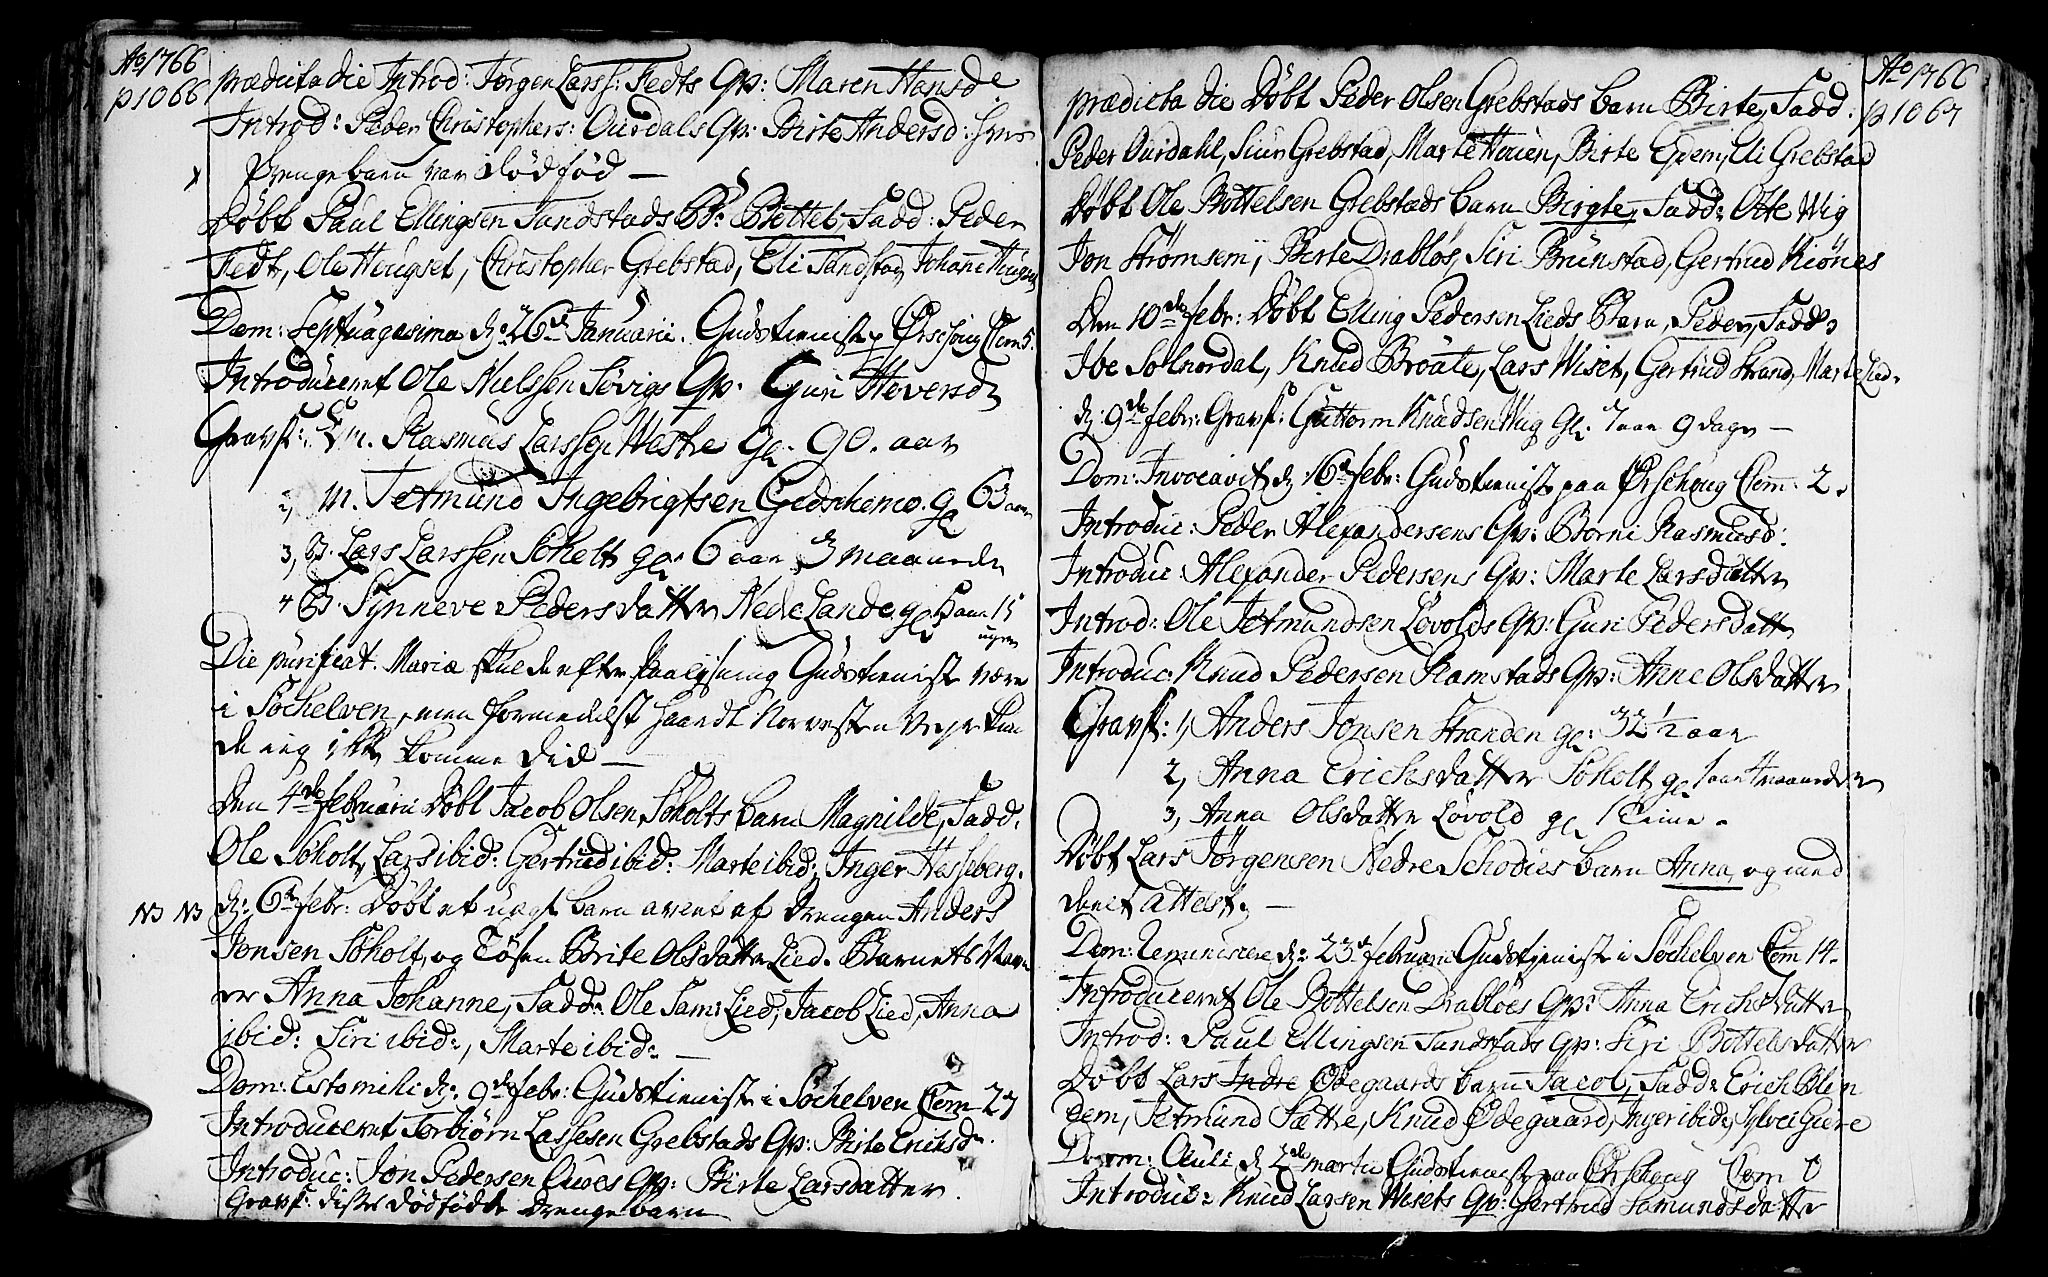 Ao 1766
p 1066
prædicta die Introd: Jørgen Larss: Fedts Qv: Maren Hansd
Introd: Peder Christophers: Ourdals Qv: Birte Andersd: hvis
Drengebarn var dødfød —
Døbt Paul Ellingsen Tandstads B: Bottel, Fadd: Peder
Fedt, Ole Hougset, Christopher Grebstad, Eli Tandstad, Johanne Hougset
Dom: Septuagesima d: 26de Januarii. Gudstieniste p Ørschoug Com 5.
Introduceret Ole Nielssen Søvigs Qv. Guri Hoversd
Gravf: 1, M. Rasmus Larssen Westre gl. 90. aar
2, M. Jetmund Ingebrigtsen Gedschemo. gl 63 aar
3, B. Lars Larssen Søholt gl. 6 aar 3 maaneder
4 B. Synneve Pedersdatter Nede Lande gl 5 aar 15
uger
Die purificat. Mariæ skulde efter Paalysning Gudstieniste være
i Søchelven, men formedelst haardt Norvesten Veyr kun
de ieg ikke komme did —
Den 4de februarii Døbt Jacob Olsen Søholts barn Magnilde, Fadd:
Ole Søholt, Lars ibid: Gertrud ibid: Marte ibid: Inger Hesseberg.
NB NB d: 6te febr: Døbt et uægte barn avlet af Drengen Anders
Jonsen Søholt, og Tøsen Brite Olsdatter Lied. Barnets Navn
er Anna Johanne, Fadd: Ole Sam: Lied, Jacob Lied, Anna
ibid: Siri ibid:, Marte ibid: —
Dom: Estomihi d: 9de febr: Gudstieniste i Søchelven Com 27
Introduceret Torbiørn Lassesen Grebstads Qv: Birte Ericksd.
Introduc: Jon Pedersen Auves Qv: Birte Larsdatter.
Gravf: disses dødfødte Drengebarn
Ao 1766
p 1067
prædicta die Døbt Peder Olsen Grebstads barn Birte, Fadd:
Peder Ourdahl, Siur Grebstad, Marte Houen, Birte Epem, Eli Grebstad
Døbt Ole Bottelsen Grebstads barn Birgte, Fadd: Otte Wig
Jon Strømsem, Birte Drabløs, Siri Brunstad, Gertrud Kiønes
Den 10de febr: Døbt Elling Pedersen Lieds Barn, Peder, Fadd:
Ibe Solnordal, Knud Broate, Lars Wiset, Gertrud Strand, Marte Lied.
d: 9de febr: Gravf: Guttorm Knudsen Wiig gl. 7 aar 9 dage —
Dom: Invocavit d 16de febr: Gudstieniste paa Ørschoug Com: 2.
Introduc: Peder Alexandersens Qv: Borni Rasmusd:
Introduc: Alexander Pedersens Qv: Marte Larsdatter
Introd: Ole Jetmundsen Løvolds Qv: Guri Pedersdatter
Introduc: Knud Pedersen Ramstads Qv: Anne Olsdatter
Gravf: 1, Anders Jonsen Stranden gl: 32 1/2 aar
2, Anna Erichsdatter Søholt gl 1 aar 4 maaneder
3, Anna Olsdatter Løvold gl 1 time.
Døbt Lars Jørgensen Nedre Schodies barn Anna, og med
deelt attest. —
Dom: Reminiscere d: 23de februarii Gudstieniste i Søchelven Com 14.
Introduceret Ole Bottelsen Drabløes Qv: Anna Erichsdatter
Introd: Paul Ellingsen Tandstads Qv: Siri Bottelsdatter
Døbt Lars Indre Ødegaards barn Jacob, Fadd: Erich Blin
dem, Jetmund Sætte, Knud Ødegaard, Inger ibid:, Sylvei Giere
Dom: Oculi d 2de martii Gudstieniste paa Ørschoug Com 0
Introduc: Knud Larsen Wisets Qv: Gertrud Samundsdatter